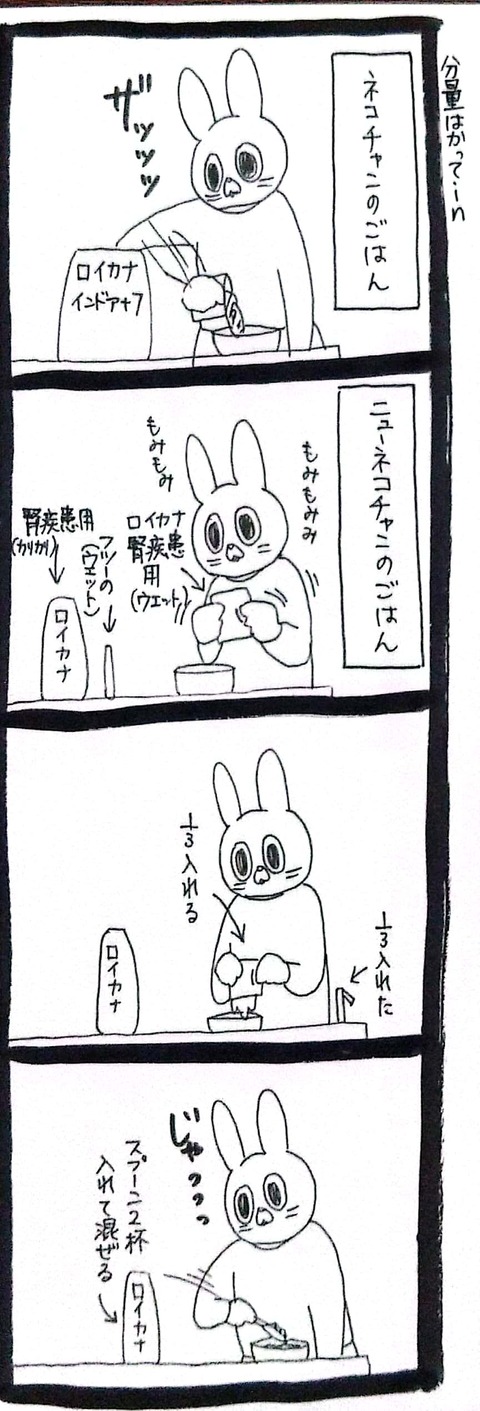 分量はかって…in
ネコチャンのごはん
ザッッッ
ロイカナ
インドア+7
ニューネコチャンのごはん
もみもみみ
もみもみ
ロイカナ
腎疾患
用
(ウェット)
フツーの
(ウェット)
腎疾患用
(カリカリ)
ロイカナ
1/3入れた
1/3入れる
ロイカナ
じゃっっっ
スプーン2杯
入れて混ぜる
ロイカナ